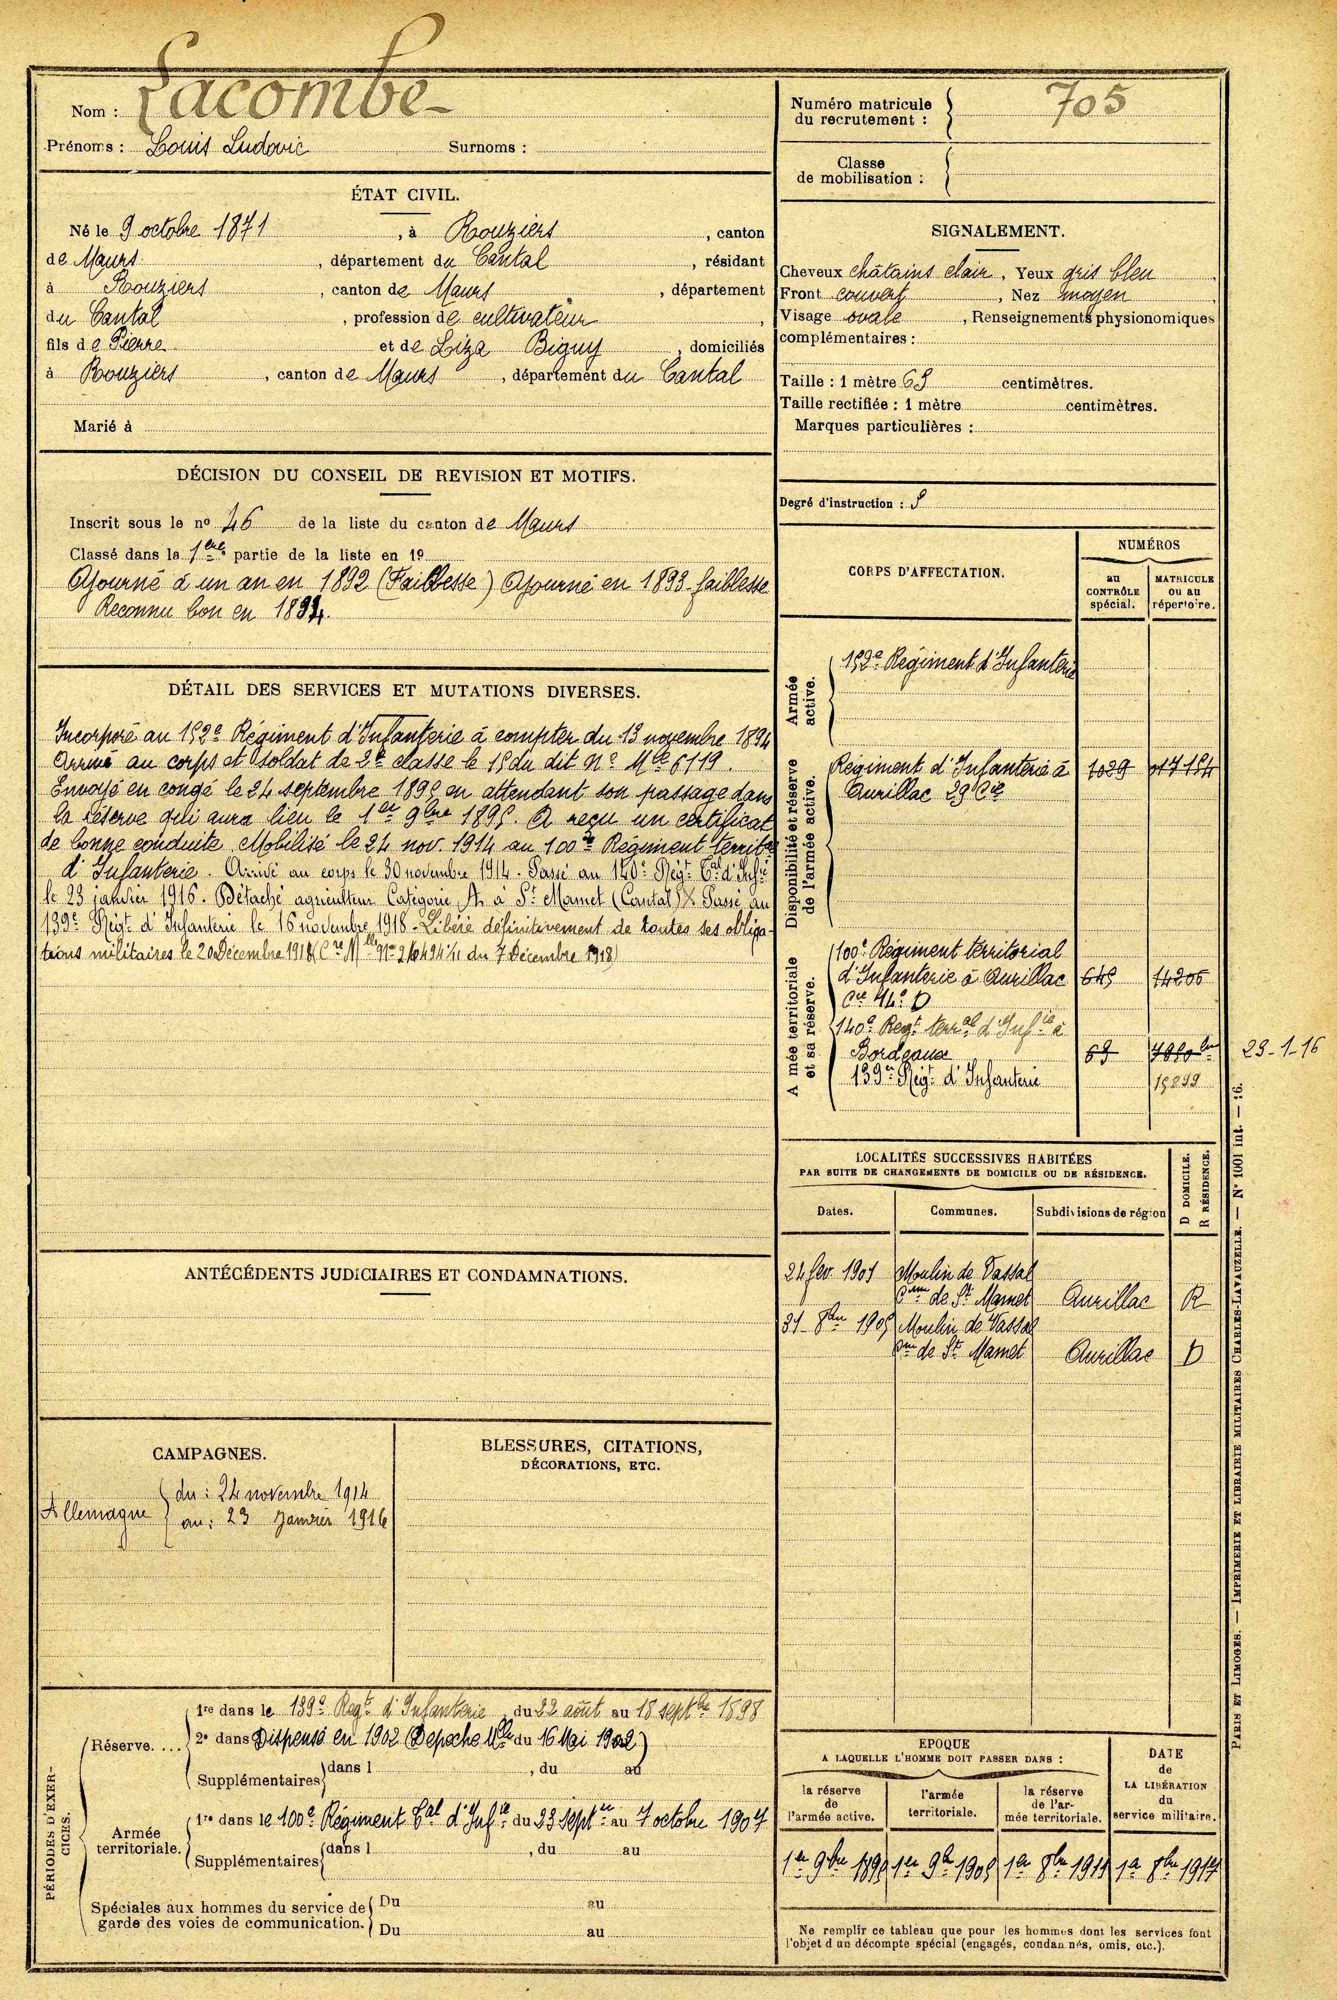 Nom : Lacombe
Prénoms : Louis Ludovic Surnoms :
Numéro matricule du recrutement : 705
Classe de mobilisation :
ÉTAT CIVIL.
Né le 9 octobre 1871, à Rouziers, canton
de Maurs, département du Cantal, résidant
à Rouziers, canton de Maurs, département
du Cantal, profession de cultivateur,
fils de Pierre et de Liza Biguy, domiciliés
à Rouziers, canton de Maurs, département du Cantal
Marié à
SIGNALEMENT.
Cheveux châtains clair, Yeux gris bleu,
Front couvert, Nez moyen,
Visage ovale, Renseignements physionomiques
complémentaires :
Taille : 1 mètre 65 centimètres.
Taille rectifiée : 1 mètre centimètres.
Marques particulières :
Degré d'instruction :
DÉCISION DU CONSEIL DE REVISION ET MOTIFS.
Inscrit sous le nº 46 de la liste du canton de Maurs
Classé dans la 1ère partie de la liste en 19
Ajourné à un an en 1892 (Faiblesse) Ajourné en 1893 faiblesse
Reconnu bon en 1894.
DÉTAIL DES SERVICES ET MUTATIONS DIVERSES.
Incorporé au 152e Régiment d'Infanterie à compter du 13 novembre 1894
Arrivé au corps et soldat de 2e classe le 15 du dit Nº Mle 6119.
Envoyé en congé le 24 septembre 1895 en attendant son passage dans
la réserve qui aura lieu le 1er 9bre 1895. A reçu un certificat
de bonne conduite. Mobilisé le 24 nov. 1914 au 100e Régiment territal
d'Infanterie. Arrivé au corps le 30 novembre 1914. Passé au 140e Régt Tal d'Infie
le 23 janvier 1916. Détaché agriculteur Catégorie A à St Mamet (Cantal) Passé au
139e Régt d'Infanterie le 16 novembre 1918. Libéré définitivement de toutes ses obliga-
tions militaires le 20 Décembre 1918 du 7 Décembre 1918)
CORPS D'AFFECTATION.
NUMÉROS
au CONTRÔLE spécial.
MATRICULE OU AU répertoire.
Armée active.
152e Régiment d'Infanterie
Disponibilité et réserve de l'armée active.
Régiment d'Infanterie à 1029 017154
Aurillac 29 Cie
A mée territoriale et sa réserve.
100e Régiment territorial
d'Infanterie à Aurillac 645 14206
Cie 44e D
140e Regt terral d'Infie à
Bordeaux 69 23-1-16
139e Régt d'Infanterie 15899
LOCALITÉS SUCCESSIVES HABITÉES
PAR SUITE DE CHANGEMENTS DE DOMICILE OU DE RÉSIDENCE.
Dates. Communes. Subdivisions de région
D DOMICILE.
R RÉSIDENCE.
24 fev. 1901 Moulin de Vassal
Cne de St Mamet Aurillac R
31 8bre 1905 Moulin de Vassal
Cne de St Mamet Aurillac D
ANTÉCÉDENTS JUDICIAIRES ET CONDAMNATIONS.
CAMPAGNES.
Allemagne
du : 24 novembre 1914
au : 23 Janvier 1916
BLESSURES, CITATIONS,
DÉCORATIONS, ETC.
PÉRIODES D'EXERCICES.
Réserve....
1re dans le 139e Regt d'Infanterie, du 22 août au 18 septbre 1898
2e dans Dispensé en 1902 (Depeche Mlle du 16 Mai 1902)
Supplémentaires dans l , du au
Armée territoriale.
1re dans le 100e Régiment Tal d'Infie du 23 septre au 7 octobre 1907
Supplémentaires dans l , du au
Spéciales aux hommes du service de garde des voies de communication.
Du au
Du au
EPOQUE
A LAQUELLE L'HOMME DOIT PASSER DANS :
la réserve de l'armée active.
l'armée territoriale.
la réserve de l'armée territoriale.
DATE de LA LIBÉRATION du service militaire.
1er 9bre 1895 1er 9bre 1905 1er 8bre 1911 1er 8bre 1917
Ne remplir ce tableau que pour les hommes dont les services font
l'objet d un décompte spécial (engagés, condan nés, omis, etc.).
PARIS ET LIMOGES. — IMPRIMERIE ET LIBRAIRIE MILITAIRES CHARLES-LAVAUZELLE. — Nº 1001 int. — 16.